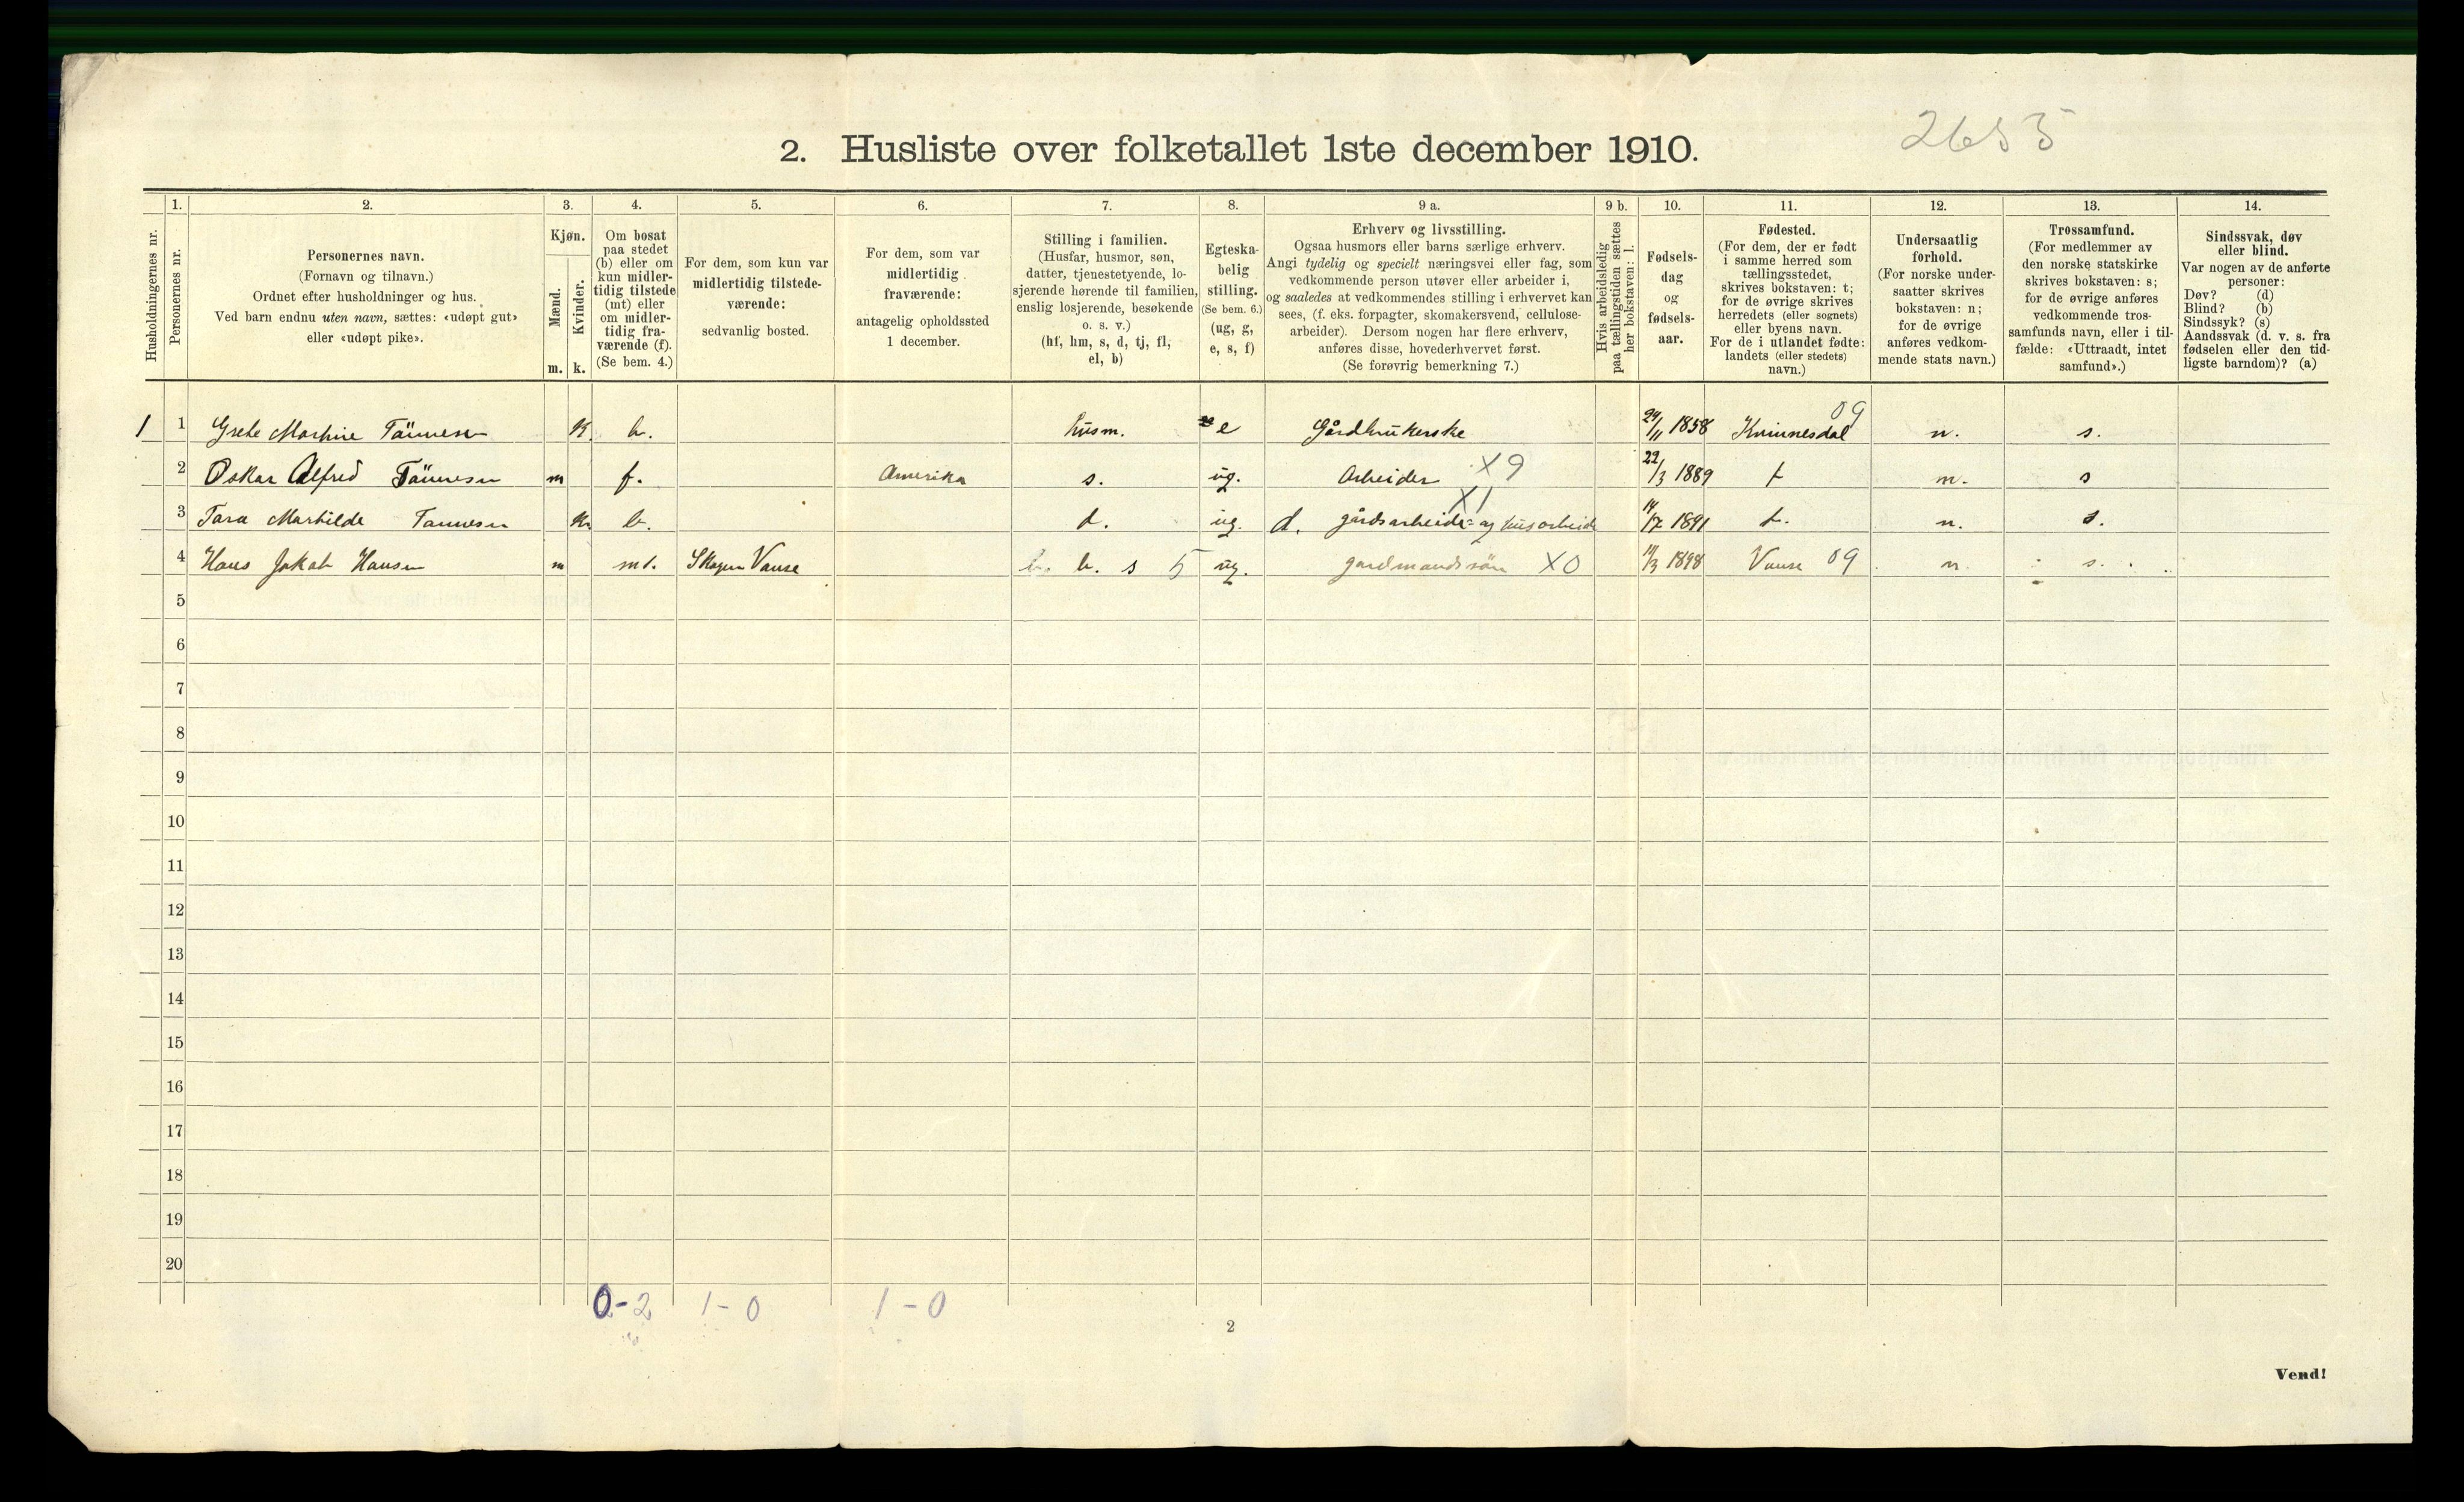 2653
2. Husliste over folketallet 1ste december 1910.
Husholdningernes nr.
1.
Personernes nr.
2.
Personernes navn.
(Fornavn og tilnavn.)
Ordnet efter husholdninger og hus.
Ved barn endnu uten navn, sættes: «udøpt gut»
eller «udøpt pike».
3.
Kjøn.
Mænd.
Kvinder.
m. k.
4.
Om bosat
paa stedet
(b) eller om
kun midler-
tidig tilstede
(mt) eller
om midler-
tidig fra-
værende (f).
(Se bem. 4.)
5.
For dem, som kun var
midlertidig tilstede-
værende:
sedvanlig bosted.
6.
For dem, som var
midlertidig
fraværende:
antagelig opholdssted
1 december.
7.
Stilling i familien.
(Husfar, husmor, søn,
datter, tjenestetyende, lo-
sjerende hørende til familien,
enslig losjerende, besøkende
o. s. v.)
(hf, hm, s, d, tj, fl,
el, b)
8.
Egteska-
belig
stilling.
(Se bem. 6.)
(ug, g,
e, s, f)
9 a.
Erhverv og livsstilling.
Ogsaa husmors eller barns særlige erhverv.
Angi tydelig og specielt næringsvei eller fag, som
vedkommende person utøver eller arbeider i,
og saaledes at vedkommendes stilling i erhvervet kan
sees, (f. eks. forpagter, skomakersvend, cellulose-
arbeider). Dersom nogen har flere erhverv,
anføres disse, hovederhvervet først.
(Se forøvrig bemerkning 7.)
9 b.
Hvis arbeidsledig
paa tællingstiden sættes
her bokstaven: l.
10.
Fødsels-
dag
og
fødsels-
aar.
11.
Fødested.
(For dem, der er født
i samme herred som
tællingsstedet,
skrives bokstaven: t;
for de øvrige skrives
herredets (eller sognets)
eller byens navn.
For de i utlandet fødte:
landets (eller stedets)
navn.)
12.
Undersaatlig
forhold.
(For norske under-
saatter skrives
bokstaven: n;
for de øvrige
anføres vedkom-
mende stats navn.)
13.
Trossamfund.
(For medlemmer av
den norske statskirke
skrives bokstaven: s;
for de øvrige anføres
vedkommende tros-
samfunds navn, eller i til-
fælde: «Uttraadt, intet
samfund».)
14.
Sindssvak, døv
eller blind.
Var nogen av de anførte
personer:
Døv? (d)
Blind? (b)
Sindssyk? (s)
Aandssvak (d. v. s. fra
fødselen eller den tid-
ligste barndom)? (a)
1 1 Grete Martine Tönnesen K. b. husm. e Gårdbrukerske 24/11 1858 Kvinnesdal 09 n. s.
2 Oskar Alfred Tönnesen m f. Amerika s. ug. Arbeider X9 22/3 1889 t n. s
3 Tara Marthilde Tønnesen K. b. d. ug. d. gårdsarbeide og husarbeide X1 14/7 1891 t. n. s.
4 Hans Jakob Hansen m mt. Skagen Vanse b. s 5 ug. gardmandssön X0 11/3 1898 Vanse 09 n s.
5
6
7
8
9
10
11
12
13
14
15
16
17
18
19
20
0-2 1-0 1-0
2
Vend!